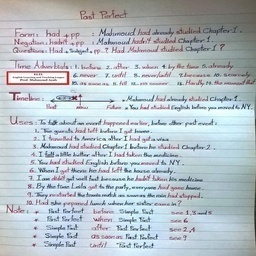 Past Perfect
Form: had + pp : Mahmoud had already studied Chapter 1.
Negation: hadn't + pp : Mahmoud hadn't studied Chapter 1
Questions: Had + Subject + pp ? Had Mahmoud studied Chapter 1 ?
Time Adverbials: 1. before 2. after 3. when 4. by the time 5. already
6. never 7. until 8. never/until 9. because 10. scarcely
Timeline:
Mahmoud had already studied Chapter 1
Past Future You had studied English before you moved to N.Y.
Uses: To talk about an event happened before other past event:
1. The guests had left before I got home.
2. I to America after I had got a visa.
3. Mahmoud had studied Chapter 1 before he studied Chapter 2.
4. I felt a little better after I had taken the medicine.
5. You had studied English before you moved to N.Y.
6. When I got there he had left the house already.
7. I didn't get well because he hadn't taken his medicine
8. By the time Laila got to the party, everyone had gone home.
9. They restarted the match as soon as the rain had stopped.
10. Had she prepared lunch when her sister came in ?
Note: * Past Perfect before Simple Past see 1, 3 and 5
* Past Perfect when Simple Past see 6
* Simple Past after Past Perfect see 2, 4
* Simple Past as soon as Past Perfect see 9
* Simple Past until Past Perfect